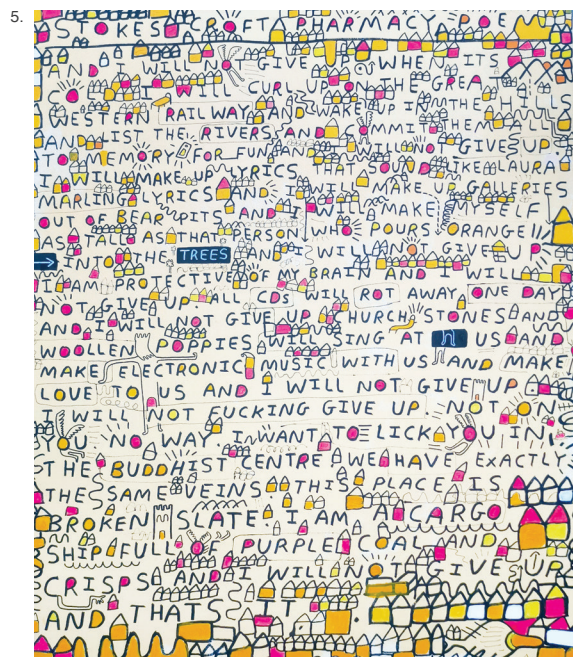 5.
STOKES CROFT A PHARMACY OPE
AND I WILL GIVE UP WHE ITS
COLD I WILL CURL UP IN THE GREAT
WESTERN RAILWAY AND WAKE IN THE HILLS
AND LIST THE RIVERS AND I WILL NOT GIVE UP
TO MEMORY OR FUN AND THAT SOUND LIKE LAURA
MARLING LYRICS AND I WILL MAKE UP GALLERIES
OUT OF BEAR PITS AND I WILL MAKE MYSELF
AS TALL AS THAT PERSON WHO POURS ORANGE
INTO THE TREES AND I WILL NOT GIVE UP
I AM PROJECTING MY BRAIN AND I WILL
NOT GIVE UP ALL CDS WILL ROT AWAY ONE DAY
AND I WILL NOT GIVE UP CHURCH STONES AND
WOOLLEN POPPIES WILL SING AT US AND
MAKE ELECTRONIC MUSIC WITH US AND MAKE
LOVE TO US AND I WILL NOT GIVE UP
I WILL NOT FUCKING GIVE UP
YOU NO WAY I WANT TO LICK YOU IN
THE BUDDHIST CENTRE WE HAVE EXACTLY
THE SAME VEINS THIS PLACE IS
BROKEN SLATE. I AM A CARGO
SHIP FULL OF PURPLE COAL AND
CRISPS AND I WILL NOT GIVE UP
AND THATS IT